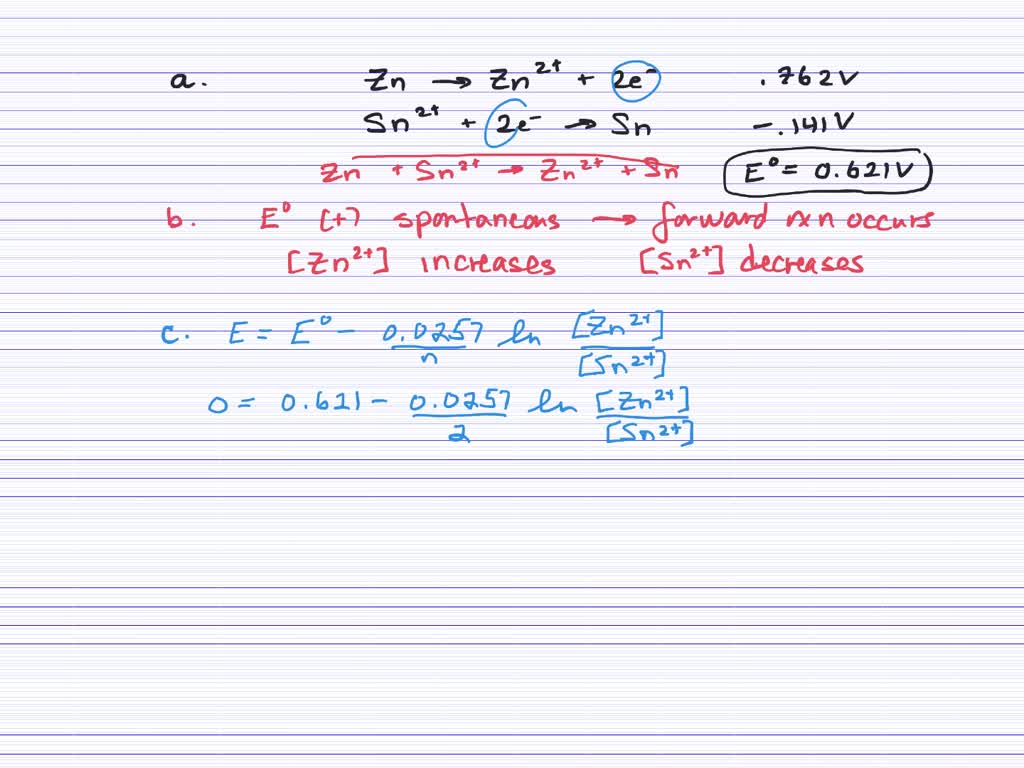 a. Zn → Zn²⁺ + 2e⁻ .762V
Sn²⁺ + 2e⁻ → Sn -.141V
Zn + Sn²⁺ → Zn²⁺ + Sn E⁰ = 0.621V
b. E⁰ (+) spontaneous → forward rxn occurs
[Zn²⁺] increases [Sn²⁺] decreases
c. E = E⁰ - 0.0257/n ln [Zn²⁺]/[Sn²⁺]
0 = 0.621 - 0.0257/2 ln [Zn²⁺]/[Sn²⁺]